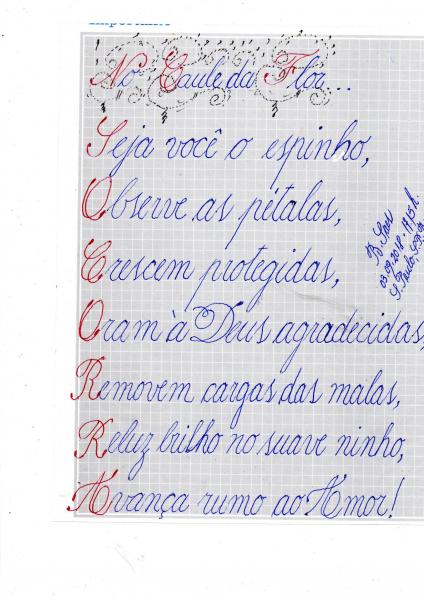 No Caule da Flor...
Seja você o espinho,
Observe as pétalas,
Crescem protegidas,
Oram à Deus agradecidas,
Removem cargas das malas,
Reluz brilho no suave ninho,
Avança rumo ao Amor!
03.09.2018 - 19,15h.
S. Paulo, S.P.